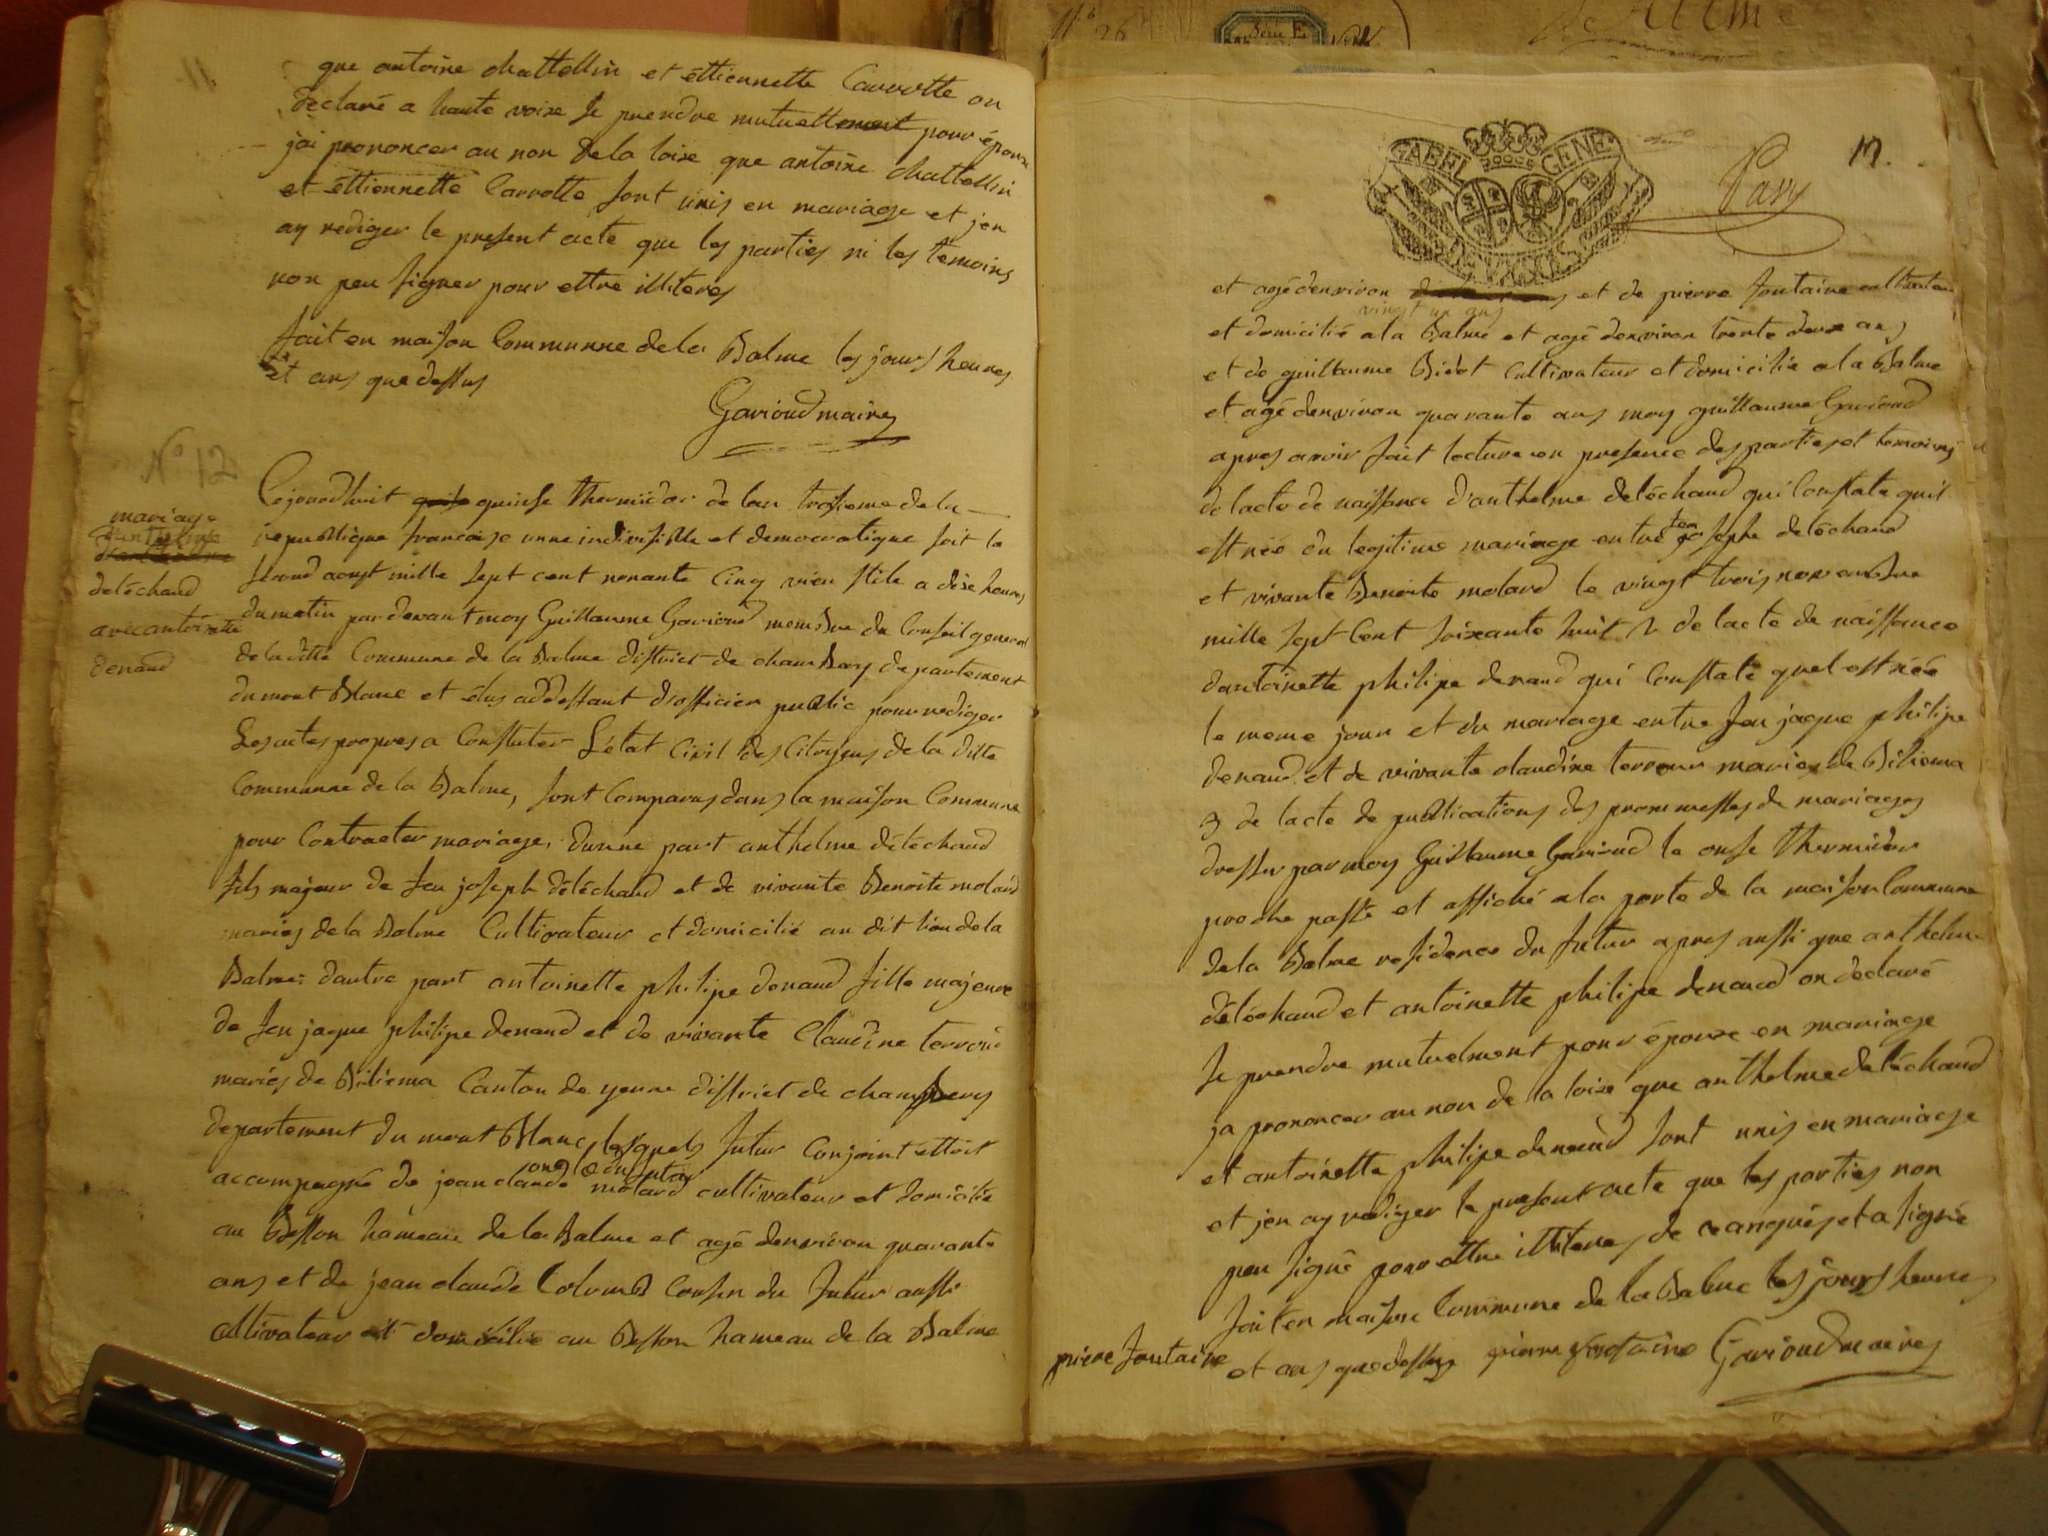 que antoine chattellin et éttiennette Carrotte on
declaré a haute voixe se prendre mutuellement pour épouse
jai prononcer au non de la loixe que antoine chattellin
et éttiennette Carrotte sont unis en mariage et jen
ay rediger le present acte que les parties ni les temoins
non peu signer pour ettre illiteres
fait en maison Commune de la Balme les jours heures
et ans que dessus
Garioud maire
N° 12
mariage
d'anthelme
deléchaud
avec antoinette
denaud
Cejourdhuit quinse thermidor de lan troisieme de la
republique francaise unne indivisible et democratique soit le
second aoust mille sept cent nonante cinq vieu stile a dise heures
du matin par devant moy Guillaume Garioud membre du Conseil general
de la ditte Commune de la Balme district de chambery departement
du mont Blanc et élus addessant d'officier public pour rediger
Les actes propres a Constater L'état Civil des Citoyens de la ditte
Commune de la Balme, sont Comparus dans la maison Commune
pour Contracter mariage, dunne part anthelme déléchaud
fils majeur de feu joseph déléchaud et de vivante Benoite molard
mariés de la Balme Cultivateur et domicilié au dit lieu de la
Balme: dautre part antoinette philipe denaud fille majeure
de feu jaque philipe denaud et de vivante Claudine
mariés de Biliema Canton de yenne district de chambery
departement du mont Blanc, lesquels futur Conjoint ettoit
oncle du futur
accompagné de jean claude molard cultivateur et domicilié
au Besson hameau de la Balme et agé denviron quarante
ans et de jean claude Colomb Cousin du futur aussi
Cultivateur et domicilié au Besson hameau de la Balme
GABEL GENE
Pavy
et agé denviron et de pierre fontaine cultivateur
vingt un ans
et domicilié a la Balme et agé denviron trente deux ans
et de guillaume Bidot Cultivateur et domicilié a la Balme
et agé denviron quarante ans moy guillaume Garioud
apres avoir fait lecture en presence des parties et temoins
de lacte de naissance d'anthelme deléchaud qui Constate quil
est née du legitime mariage entre feu joseph deléchaud
et vivante Benoite molard le vingt trois novembre
mille sept Cent soixante huit 2 de lacte de naissance
dantoinette philipe denaud qui Constate quel est née
le meme jour et du mariage entre feu jaque philipe
denaud et de vivante claudine mariés de Biliema
3 de lacte de publications des prommesses de mariages
dresser par moy Guillaume Garioud le onse thermidor
proche passé et affiché a la porte de la maison Commune
de la Balme residence du futur apres aussi que anthelme
deléchaud et antoinette philipe denaud on déclaré
se prendre mutuelment pour épouxe en mariage
ja prononcer au non de la loixe que anthelme deléchaud
et antoinette philipe denaud sont unis en mariage
et jen ay rediger le present acte que les parties non
peu signé pour ettre illiteres de ce anquis et a signé
fait en maison Commune de la Balme les jours heures
et ans que dessus pierre fontaine Garioud maire
pierre fontaine